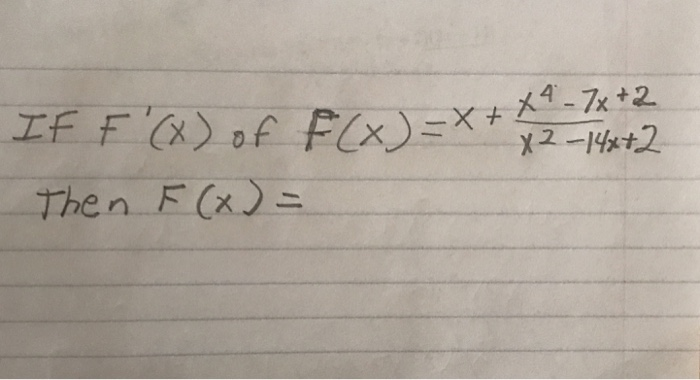 IF F'(x) of F(x) = x + \frac{x^4 - 7x + 2}{x^2 - 14x + 2}
Then F(x) =